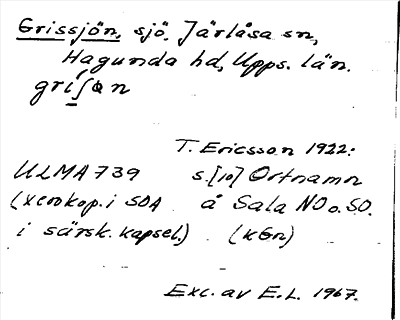 Grissjön, sjö. Järlåsa sn,
Hagunda hd, Upps. län.
griʃọn
T. Ericsson 1922:
ULMA 739 s. [10] Ortnamn
(xerokop. i SOA å Sala NO o. SO.
i särsk. kapsel.) (KGn)
Exc. av E.L. 1967.